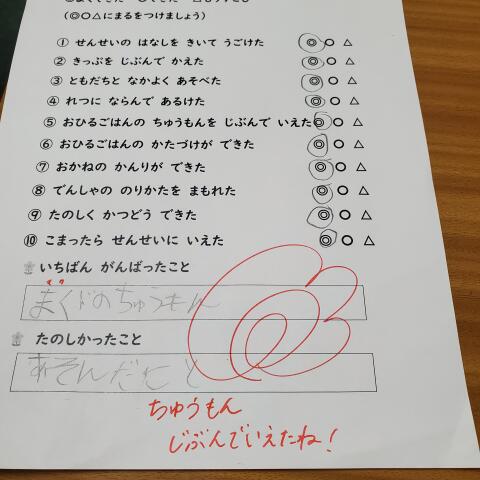 (◎○△にまるをつけましょう)
① せんせいの はなしを きいて うごけた ◎ ○ △
② きっぷを じぶんで かえた ◎ ○ △
③ ともだちと なかよく あそべた ◎ ○ △
④ れつに ならんで あるけた ◎ ○ △
⑤ おひるごはんの ちゅうもんを じぶんで いえた ◎ ○ △
⑥ おひるごはんの かたづけが できた ◎ ○ △
⑦ おかねの かんりが できた ◎ ○ △
⑧ でんしゃの のりかたを まもれた ◎ ○ △
⑨ たのしく かつどう できた ◎ ○ △
⑩ こまったら せんせいに いえた ◎ ○ △
いちばん がんばったこと
まくどのちゅうもん
たのしかったこと
あそんだこと
ちゅうもん
じぶんでいえたね!